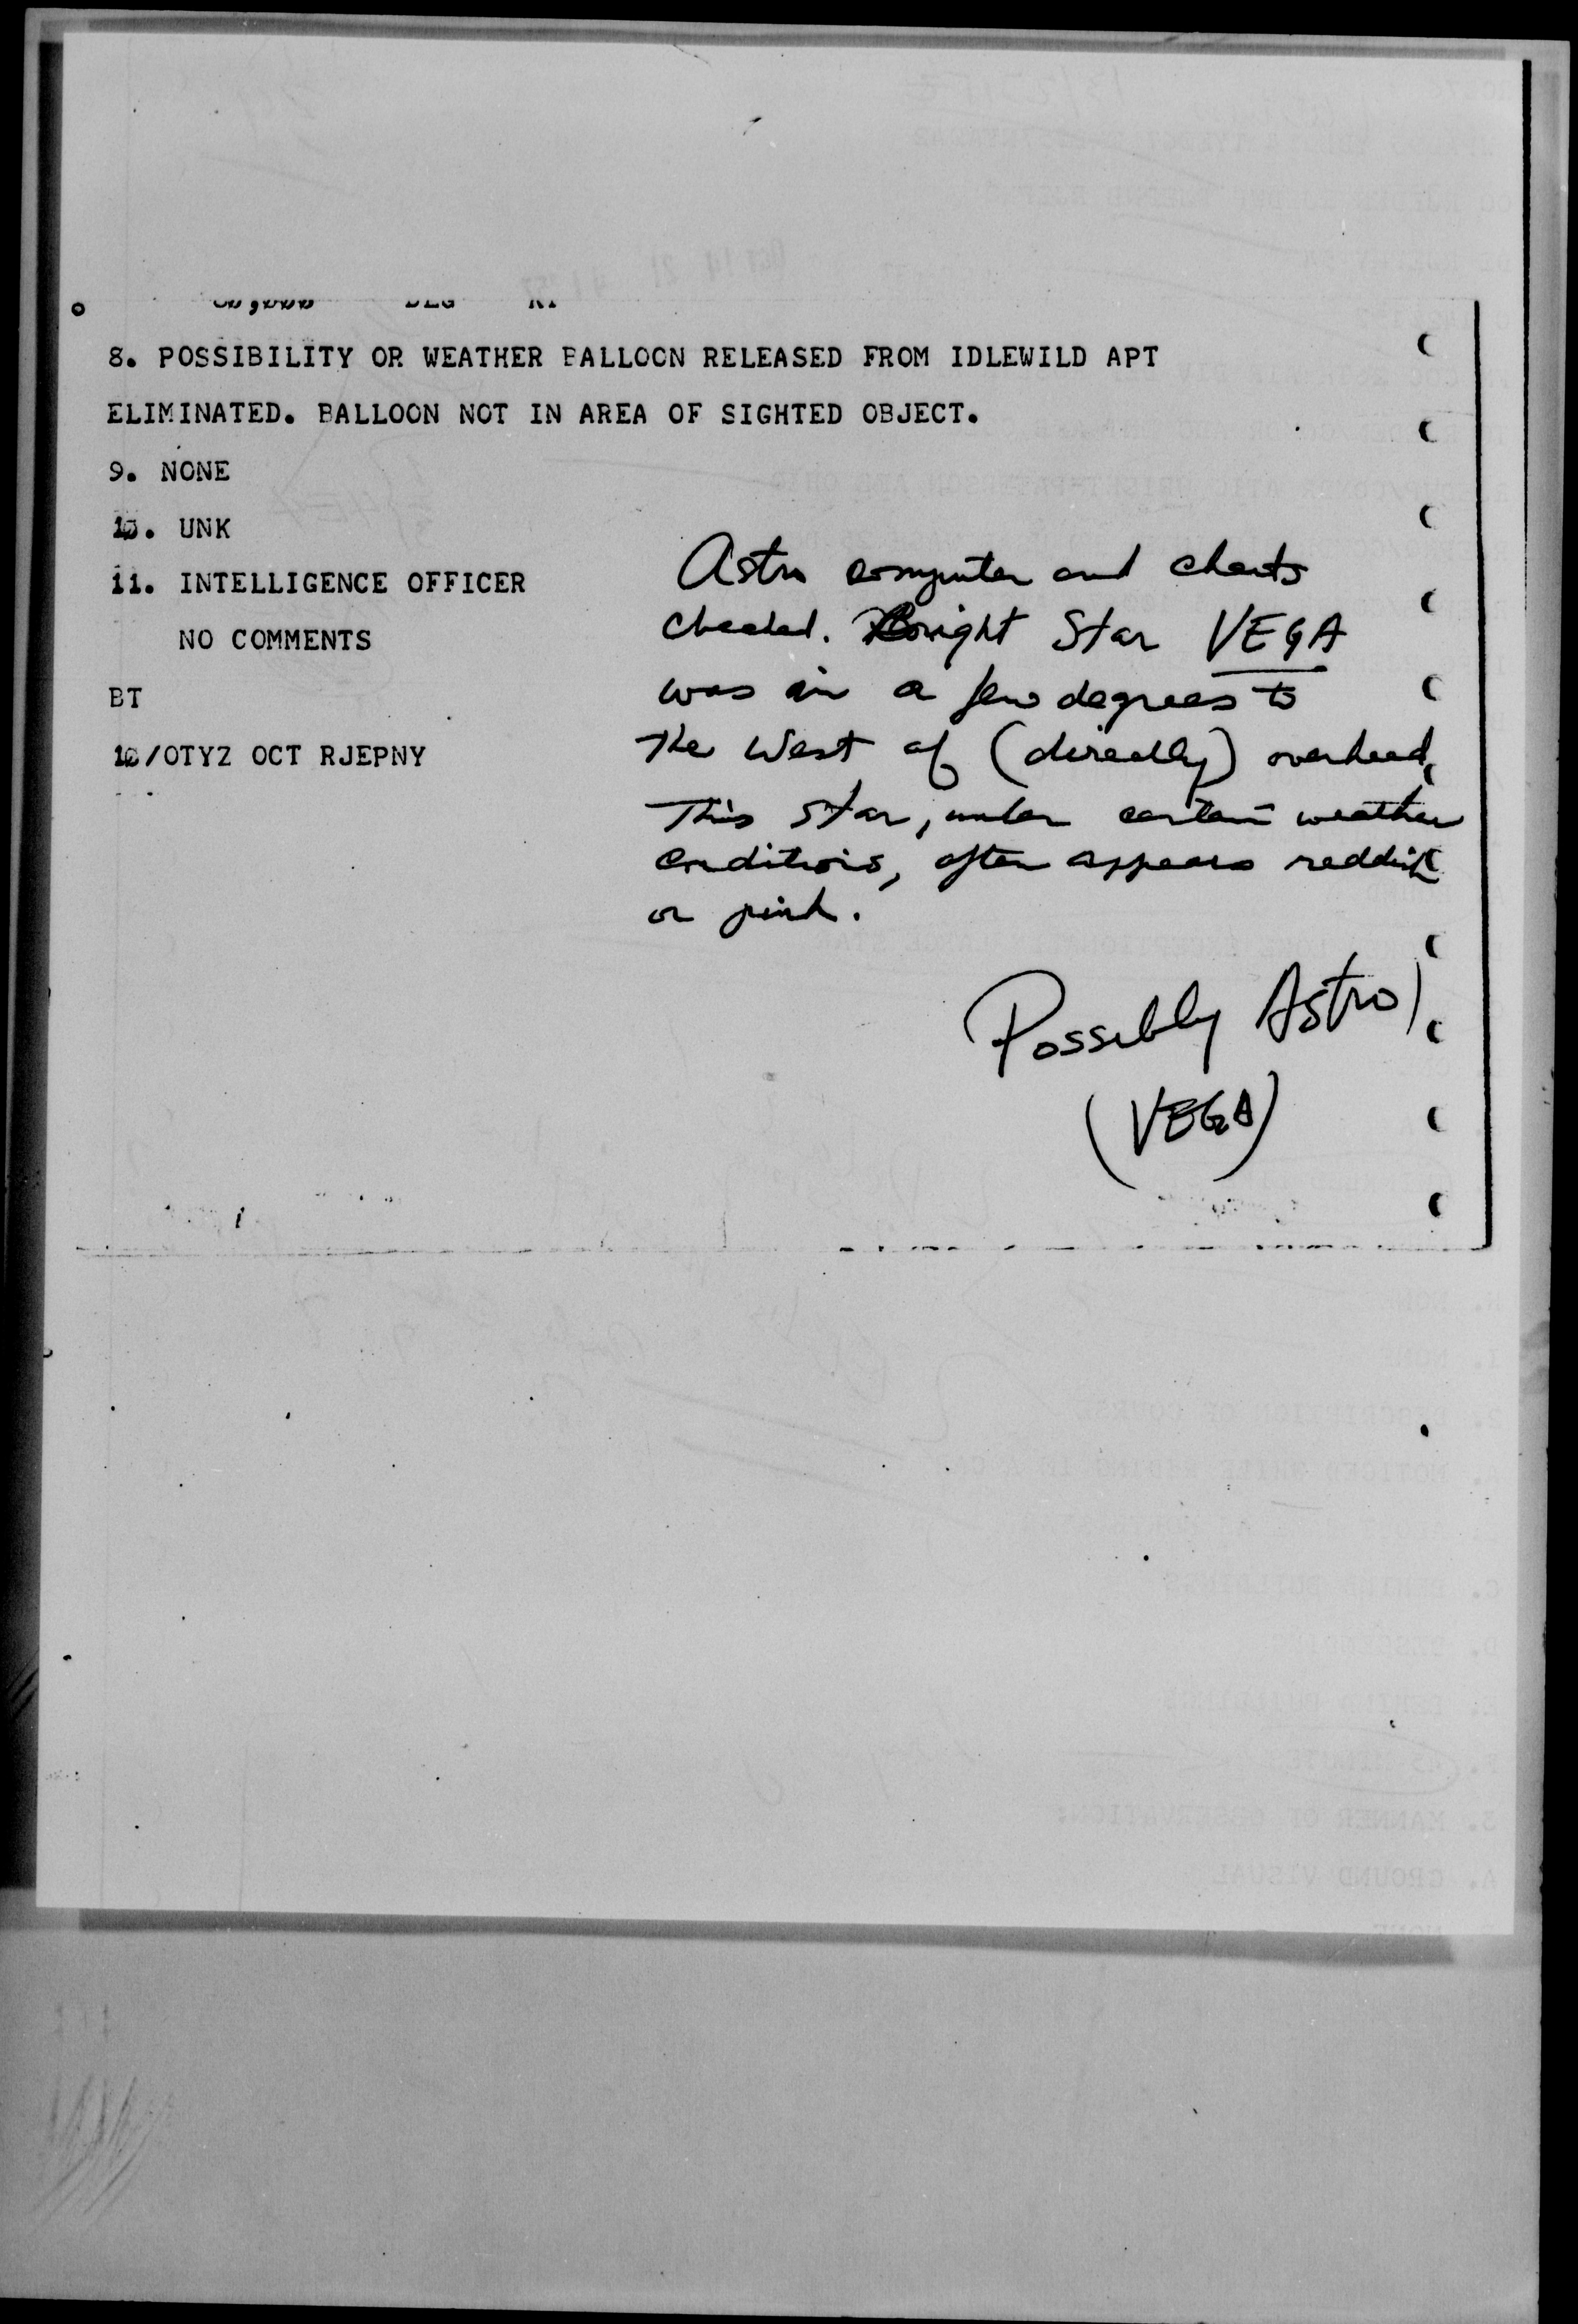 80,000 DEG KT
8. POSSIBILITY OR WEATHER BALLOON RELEASED FROM IDLEWILD APT
ELIMINATED. BALLOON NOT IN AREA OF SIGHTED OBJECT.
9. NONE
10. UNK
11. INTELLIGENCE OFFICER
NO COMMENTS
BT
10/OTYZ OCT RJEPNY
Astro computer and charts
checked. Bright Star VEGA
was in a few degrees to
the West of (directly) overhead,
This star, under certain weather
conditions, often appears reddish
or pink.
Possibly Astro
(VEGA)